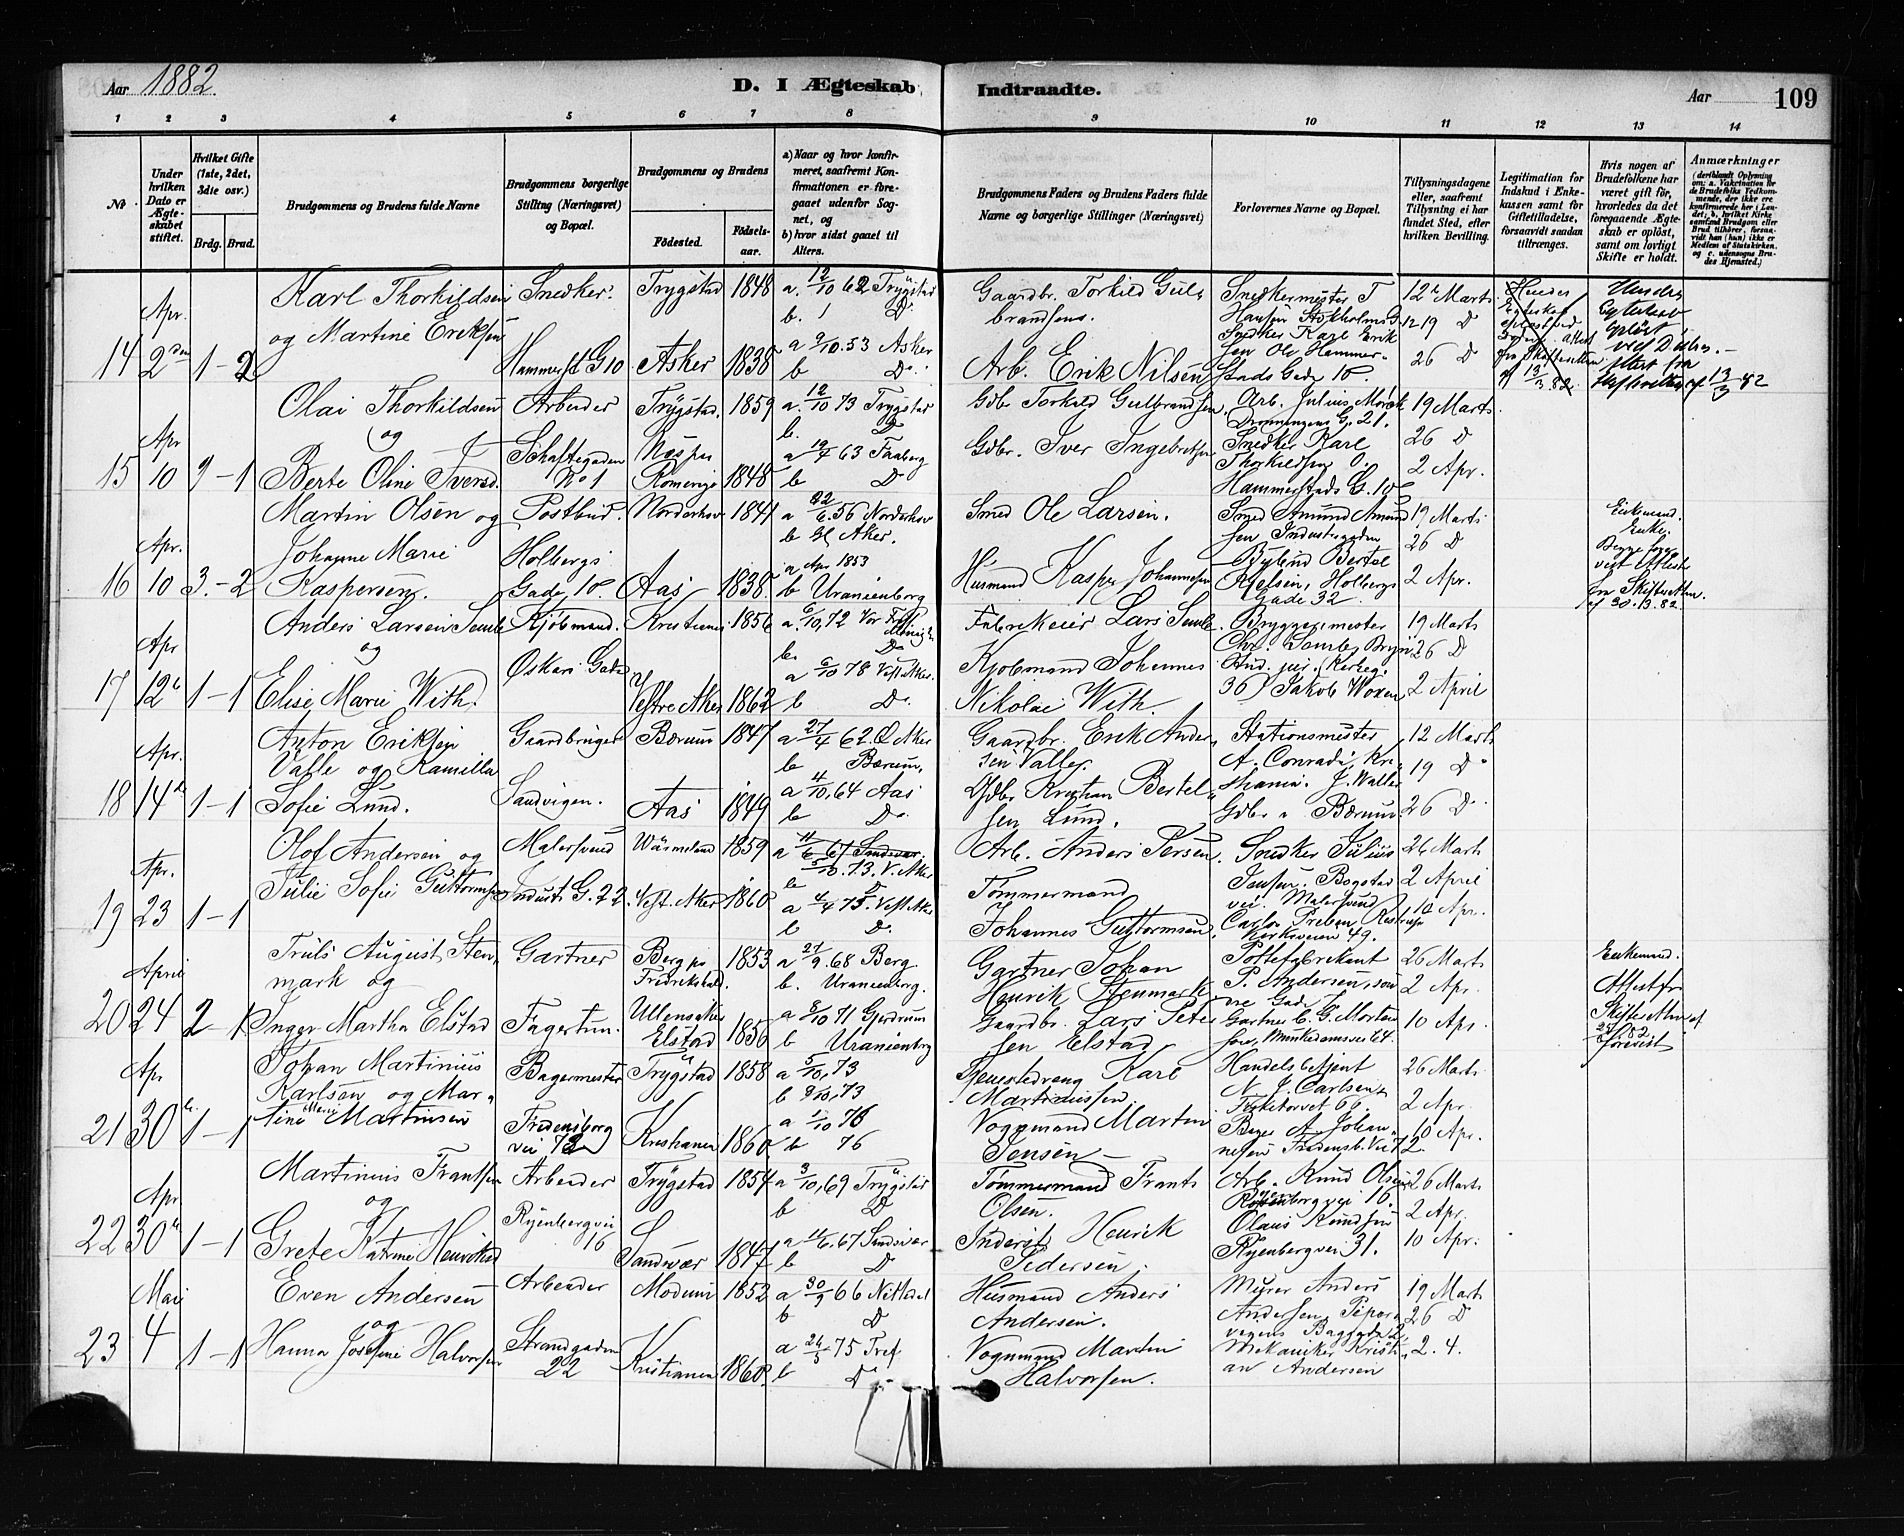 Aar 1882.
D. I Ægteskab Indtraadte.
Aar 109
1 2 3 4 5 6 7 8 9 10 11 12 13 14
No
Under hvilken Dato er Ægteskabet stiftet.
Hvilket Gifte (1ste, 2det, 3die osv.)
Brdg. Brud.
Brudgommens og Brudens fulde Navne
Brudgommens borgerlige Stilling (Næringsvei) og Bopæl.
Brudgommens og Brudens
Fødested. Fødselsaar.
a) Naar og hvor konfirmeret, saafremt Konfirmationen er foregaaet udenfor Sognet, og
b) hvor sidst gaaet til Alters.
Brudgommens Faders og Brudens Faders fulde Navne og borgerlige Stillinger (Næringsvei)
Forlovernes Navne og Bopæl.
Tillysningsdagene eller, saafremt Tillysning ei har fundet Sted, efter hvilken Bevilling.
Legitimation for Indskud i Enkekassen samt for Giftetilladelse, forsaavidt saadan tiltrænges.
Hvis nogen af Brudefolkene har været gift før, hvorledes da det foregaaende Ægteskab er opløst, samt om lovligt Skifte er holdt.
Anmærkninger
(deriblandt Oplysning om: a. Vakcination for de Brudefolks Vedkommende, der ikke ere konfirmerede her i Landet; b. hvilket Kirkesamfund Brudgom eller Brud tilhører, forsaavidt han (hun) ikke er Medlem af Statskirken, og c. udensogns Brudes Hjemsted.)
14 Apr. 2den 1-2
Karl Thorkildsen
og Martine Eriksen
Snedker.
Hammerst G 10
Trygstad 1848 a. 12/10 62 Trygstad
b. D.
Asker 1838 a 9/10. 53 Asker
b D.
Gaardbr. Torkild Gulbrandsens.
Arb. Erik Nilsen
Snedkermester T
Hansen Stokholms G 12
Snedker Karl Erik
sen Ole Hammer-
stads Gade 10.
12te Marts.
19 D
26 D
15 Apr 10 2-1
Olai Thorkildsen
og
Berte Oline Iversd.
Arbeider
Schaftegaden
No 1
Trygstad. 1859 a. 12/10 73 Trygstad
b. D
Romerige 1848 a 19/4 63 Faaberg
b D
Gdb. Torkild Gulbrandsen
Gdbr. Iver Ingebretsen
Arb. Julius Monsk
Dronningens G. 21.
Snedker Karl
Thorkildsen O.
Hammerstads G. 10
19 Marts
26 D
2 Apr.
16 Apr. 10 3-2
Martin Olsen og
Johanne Marie
Kaspersen.
Postbud.
Holbergs
Gade 10.
Norderhov 1841 a 22/6. 56 Norderhov
b Gl Aker.
Aas 1838 a Apr 1853
b Uranienborg
Smed Ole Larsen.
Husmand Kasper Johannesen
Smed Amund Amund
sen Industrigaden
Bylund Bertel
Holbergs
Gade 32
19 Marts
26 D
2 Apr.
Enkemand.
Enke.
Begge
vist Attest
fra Skifteretten
af 30.13.82.
17 Apr 12te 1-1
Anders Larsen Semb
og
Elise Marie With.
Kjøbmand.
Oskars Gade
Kristiania 1856 a. 6/10, 72 Vor Frels
b. D.
Vestre Aker 1862 a 6/10 78 Vest Aker.
b D.
Fabrikeier Lars Semb
Kjøbmand Johannes
Nikolai With.
Bryggermester
Chr. Semb, Bryn
Stud. jur.
36 Jakob Woxen
19 Marts
26 D
2 April
18 Apr. 14de 1-1
Anton Eriksen
Valle og Kamilla
Sofie Lund.
Gaardbruger
Sandvigen.
Bærum 1847 a 27/4 62. Ø Aker
b Bærum.
Aas 1849 a 4/10. 64 Aas
b D.
Gaardbr. Erik Ander
sen Valle.
Gdbr Kristian Bertel
sen Lund.
Stationsmester
A. Conradi, Kri
stiania. J. Walle
Gdbr i Bærum
12 Marts
19 D
26 D.
19 Apr. 23 1-1
Olof Andersen og
Julie Sofie Guttormsen
Malersvend
Industri G. 22
Wärmeland 1859 a 11/6 67 Sandsvær.
5/10. 73. V. Aker
b D
Vest. Aker 1860 a 4/4 75. Vest Aker
b D.
Arb. Anders Persen
Tømmermand
Johannes Guttormsen
Snedker Julius
Jensen. Bogstad
vei. Malersvend
Carlo Preben
Kirkeveien 49.
26 Marts
2 April
10 Apr.
20 April 24 2-1
Truls August Sten
mark og
Inger Martha Elstad
Gartner
Fagertun.
Berg ps
Fredrikshald. 1853 a 27/9. 68 Berg
b. Uranienborg.
Ullensaker
Elstad 1856 a 8/10 71 Gjerdrum
b Uranienborg
Gartner Johan
Henrik Stenmark
Gaardbr. Lars Peter
sen Elstad
Pottefabrikant
P. Andersen,
Gartner C. G. Morten
sen, Munkedamsvei 64.
26 Marts
2 Apr.
10 Apr.
Enkemand.
Attest fr
21 Apr 30te 1-1
Johan Martinius
Karlsen og Mar-
tine Marie Martinsen
Bagermester
Fredensborg
vei 72
Trygstad 1858 a 5/10, 73
b 8/10, 73
Kristiania 1860 a 1/10 76
b 76
Karl
Martinussen.
Vognmand Martin
Jensen
Handels Agent
N. J. Carlsen
Torvet 66.
Bager A Johan-
nesen Fredensb. Vei 72.
26 Marts
2 Apr.
10 Apr.
22 Apr. 30te 1-1
Martinus Frantsen
og
Grete Katrine Henriksd
Arbeider
Ryenbergvei
16
Trygstad 1854 a 3/10, 69 Trygstad
b D
Sandsvær 1847 a 11/6. 67 Sandsvær
b D
Tømmermand Frants
Olsen.
Inderst Henrik
Pedersen.
Arb. Knud Olsen
Ryenbergvei 16.
Olaus Knudsen
Ryenbergvei 31.
26 Marts
2 Apr.
10 Apr.
23 Mai 4 1-1
Even Andersen
og
Hanna Josefine Halvorsen
Arbeider
Strandgaden
22
Modum 1852 a 30/9 66 Nittedal
b D
Kristiania 1860. a 26/5 75 Tref
b D
Husmand Anders
Andersen.
Vognmand Martin
Halvorsen.
Murer Anders
Andersen, Piper
vegens Baggade 2
Mekaniker Kristi
an Andersen
19 Marts
26 D
2. 4.